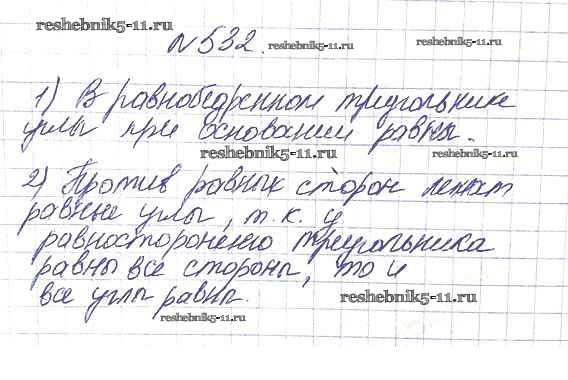 reshebnik5-11.ru
№532. reshebnik5-11.ru reshebnik5-11.ru
1) В равнобедренном треугольнике
углы при основании равны.
reshebnik5-11.ru reshebnik5-11.ru
2) Против равных сторон лежат
равные углы, т.к. у
равностороннего треугольника
равны все стороны, то и
все углы равны. reshebnik5-11.ru
reshebnik5-11.ru